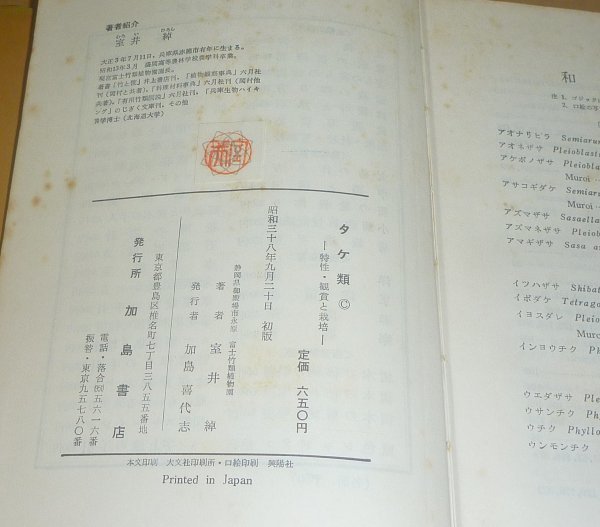 著者紹介
むろ い ひろし
室井 綽
大正3年7月11日，兵庫県赤穂市有年に生まる。
昭和13年3月 盛岡高等農林学校農学科卒業。
現在富士竹類植物園園長。
著書「竹と笹」井上書店刊，「植物観察事典」六月社
刊（岡村と共著），「料理材料事典」六月社刊（岡村他
共著），「有用竹類図説」六月社刊，「兵庫生物ハイキ
ング」のじぎく文庫刊，その他
農学博士（北海道大学）
タケ類 ©
―特性・観賞と栽培―
定価 六五〇円
昭和三十八年九月二十日 初版
静岡県御殿場市永原 富士竹類植物園
著者 室井 綽
発行者 加島喜代志
東京都豊島区椎名町七丁目三八五五番地
発行所 加島書店
電話・落合(951)五六一六番
振替・東京九五七八〇番
本文印刷 大文社印刷所・口絵印刷 興陽社
Printed in Japan
和
注 1. ゴシック
2. 口絵の写
アオナリヒラ Semiarun
アオネザサ Pleioblast
アケボノザサ Pleiobl
Muroi
アサコギダケ Semiarun
Muroi
アズマザサ Sasaella
アズマネザサ Pleiob
アマギザサ Sasa a
イツハザサ Shibat
イボダケ Tetrago
イヨスダレ Pleiob
Muro
インヨウチク Ph
ウエダザサ Plei
ウサンチク Phyll
ウチク Phyllo
ウンモンチク